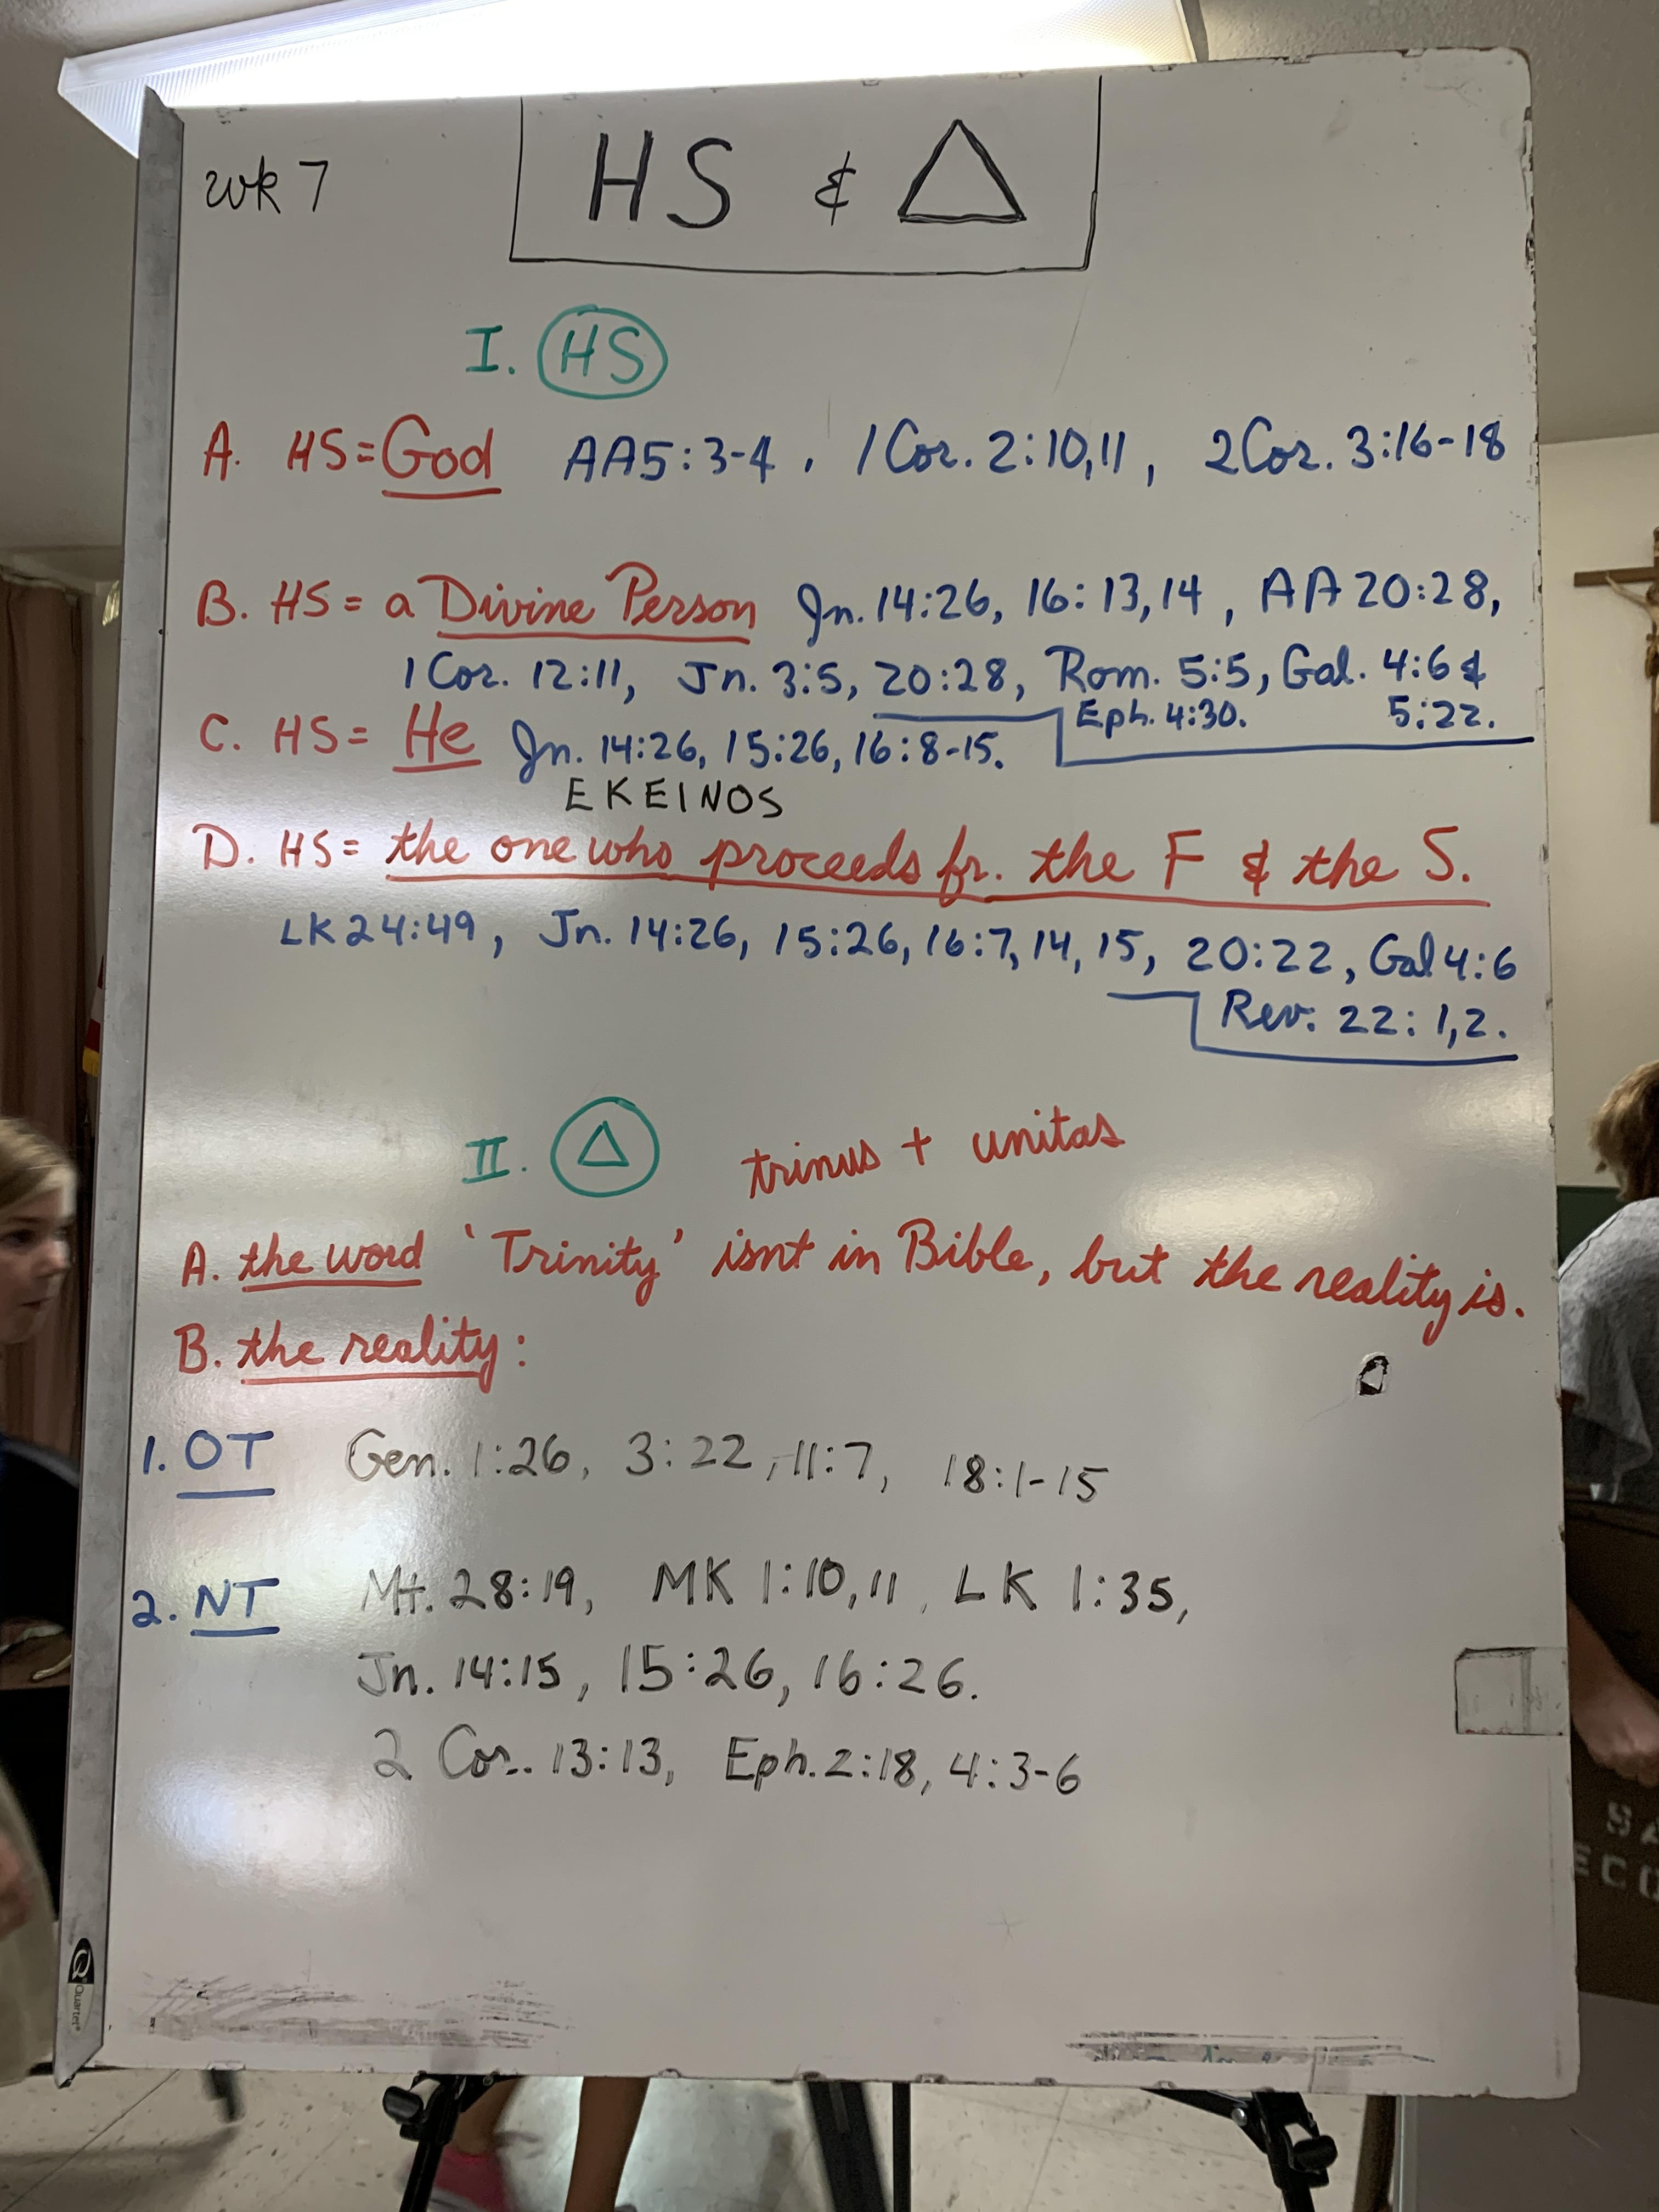 wk 7
HS & △
I. HS
A. HS = God AA5:3-4, 1 Cor. 2:10,11, 2 Cor. 3:16-18
B. HS = a Divine Person Jn. 14:26, 16:13,14, AA 20:28,
1 Cor. 12:11, Jn. 3:5, 20:28, Rom. 5:5, Gal. 4:6 &
Eph. 4:30. 5:22.
C. HS = He Jn. 14:26, 15:26, 16:8-15.
EKEINOS
D. HS = the one who proceeds fr. the F & the S.
LK 24:49, Jn. 14:26, 15:26, 16:7, 14, 15, 20:22, Gal 4:6
Rev. 22:1,2.
II. △ trinus + unitas
A. the word 'Trinity' isnt in Bible, but the reality is.
B. the reality:
1. OT Gen. 1:26, 3:22, 11:7, 18:1-15
2. NT Mt. 28:19, MK 1:10,11, LK 1:35,
Jn. 14:15, 15:26, 16:26.
2 Cor. 13:13, Eph. 2:18, 4:3-6
Quartet®